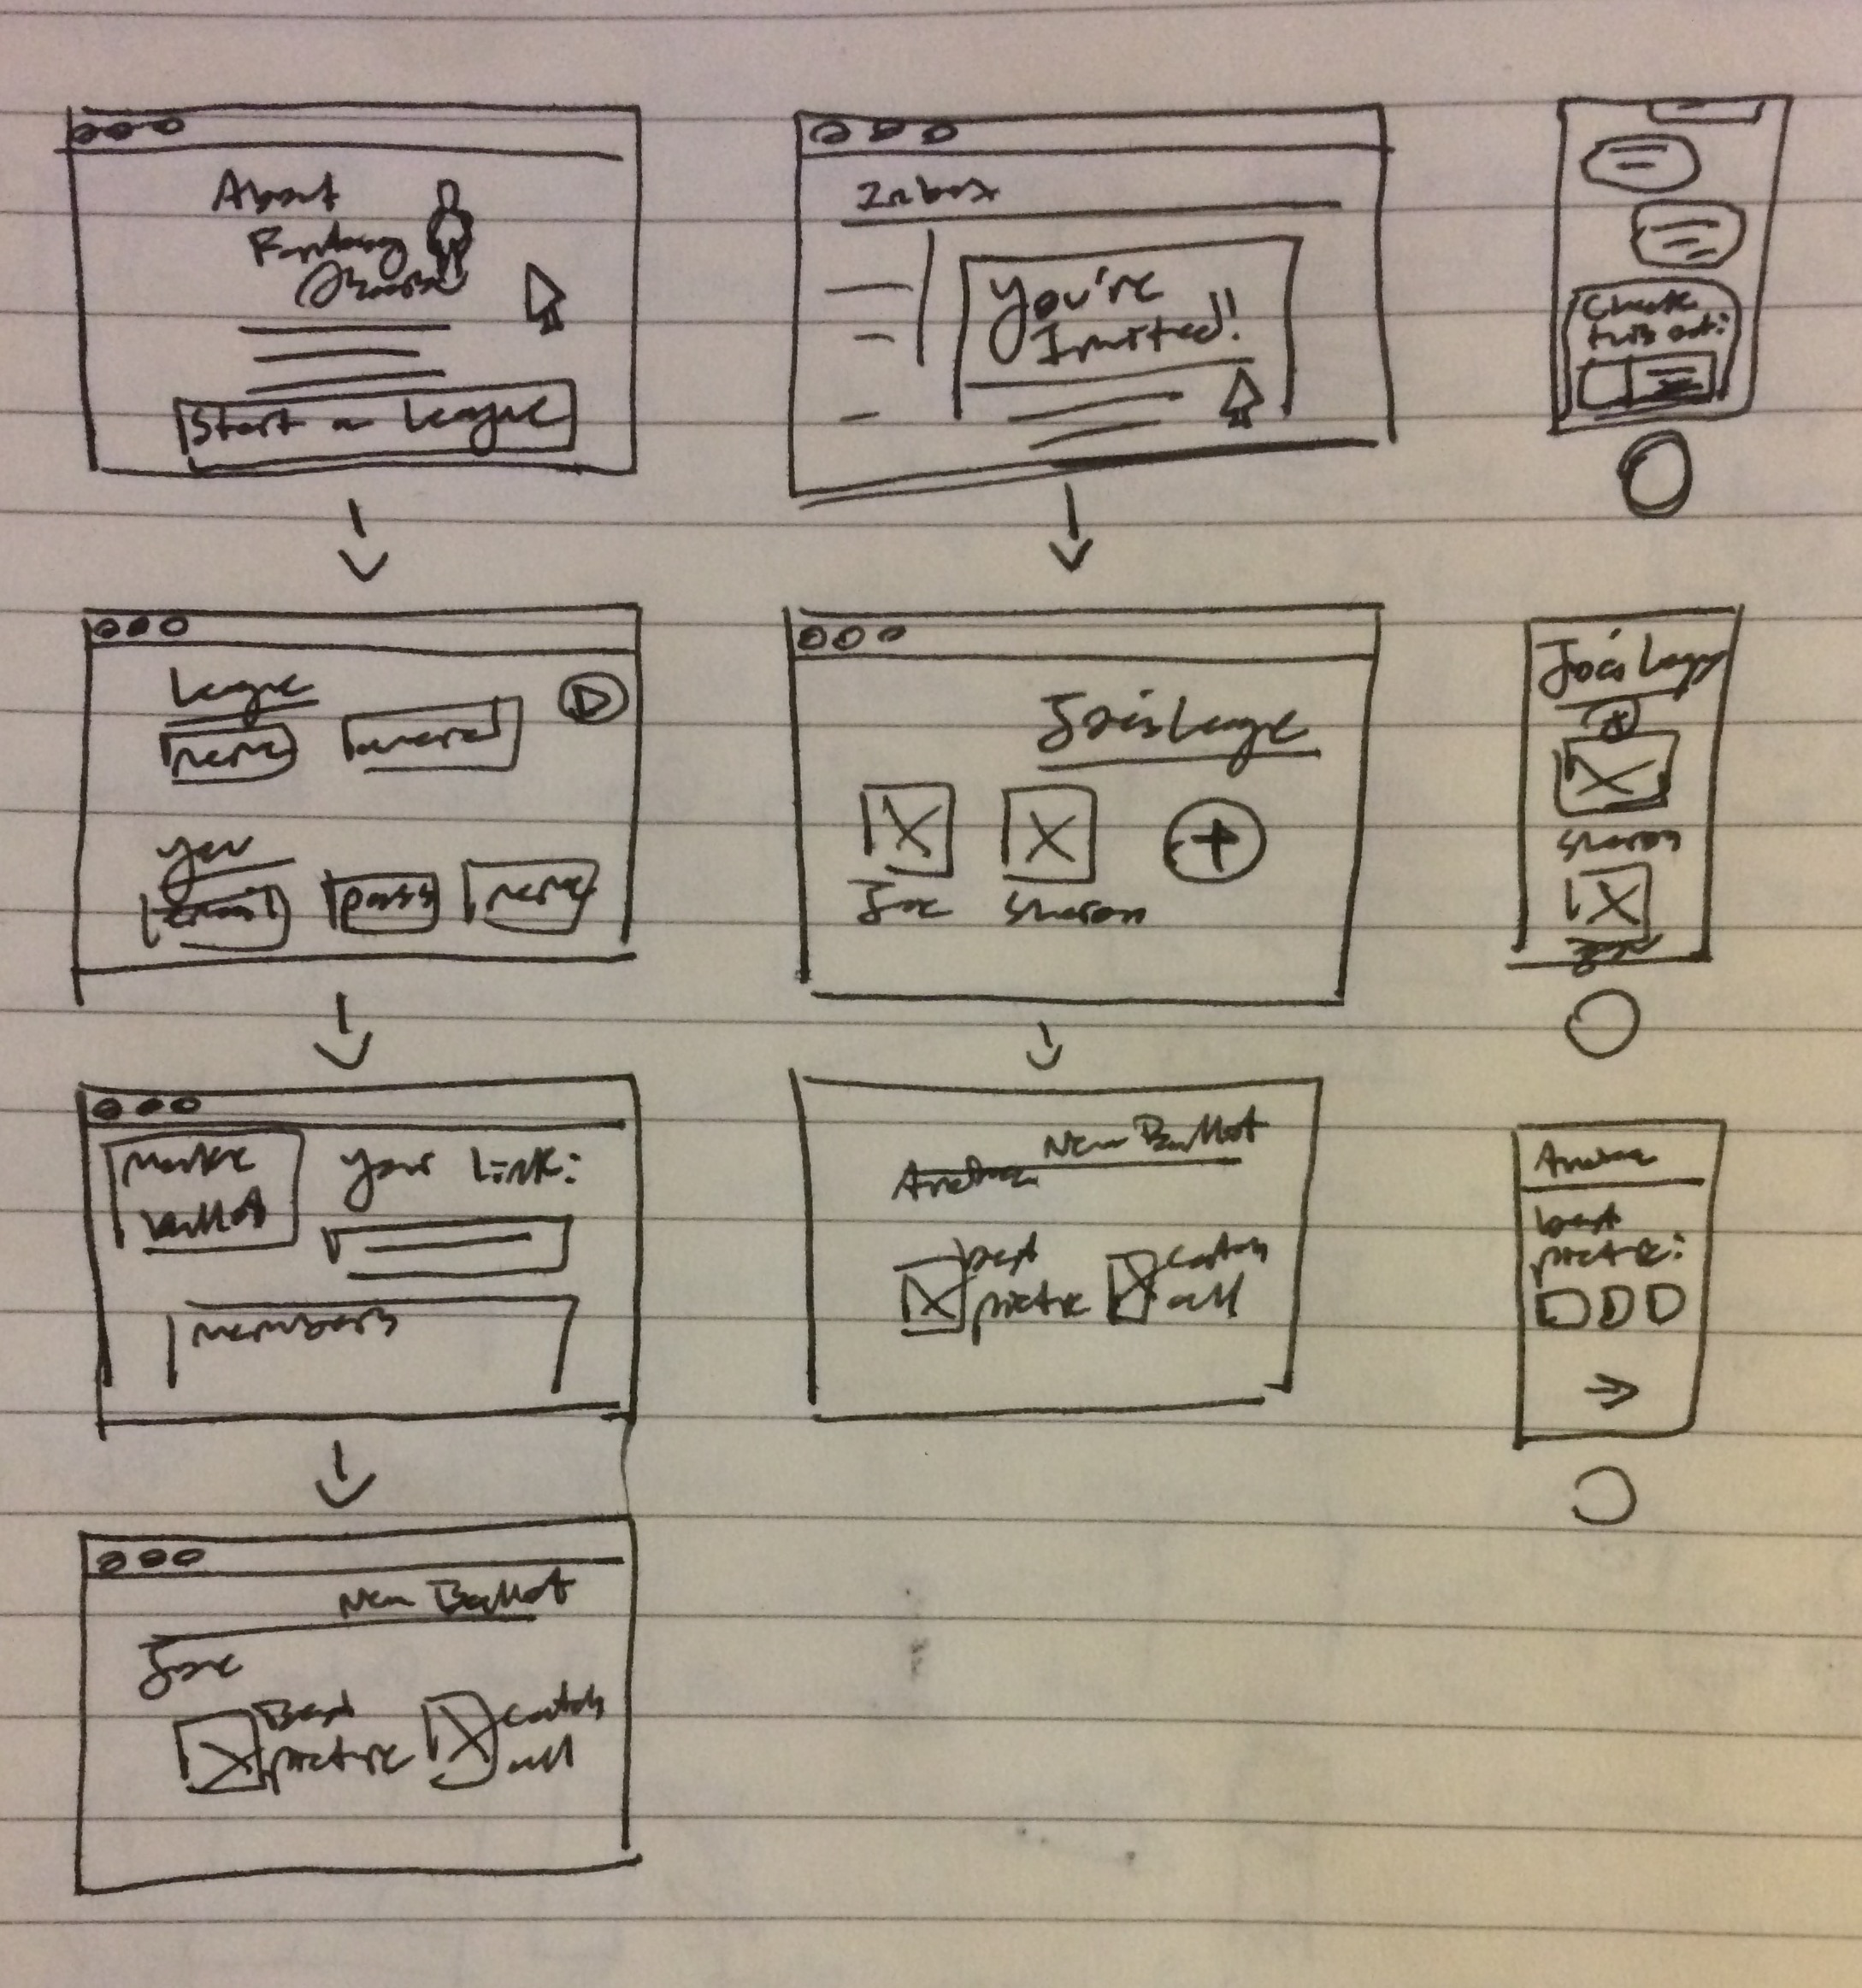 About
Fantasy
Start a League
League
name
You
email
pass
name
Make
ballot
Your Link:
members
New Ballot
Joe
Best
picture
catch
all
Inbox
You're
Invited!
Joe's League
Joe
Sharon
New Ballot
Andrea
best
picture
catch
all
Check
this out:
Joe's League
Sharon
Joe
Andrea
best
picture: